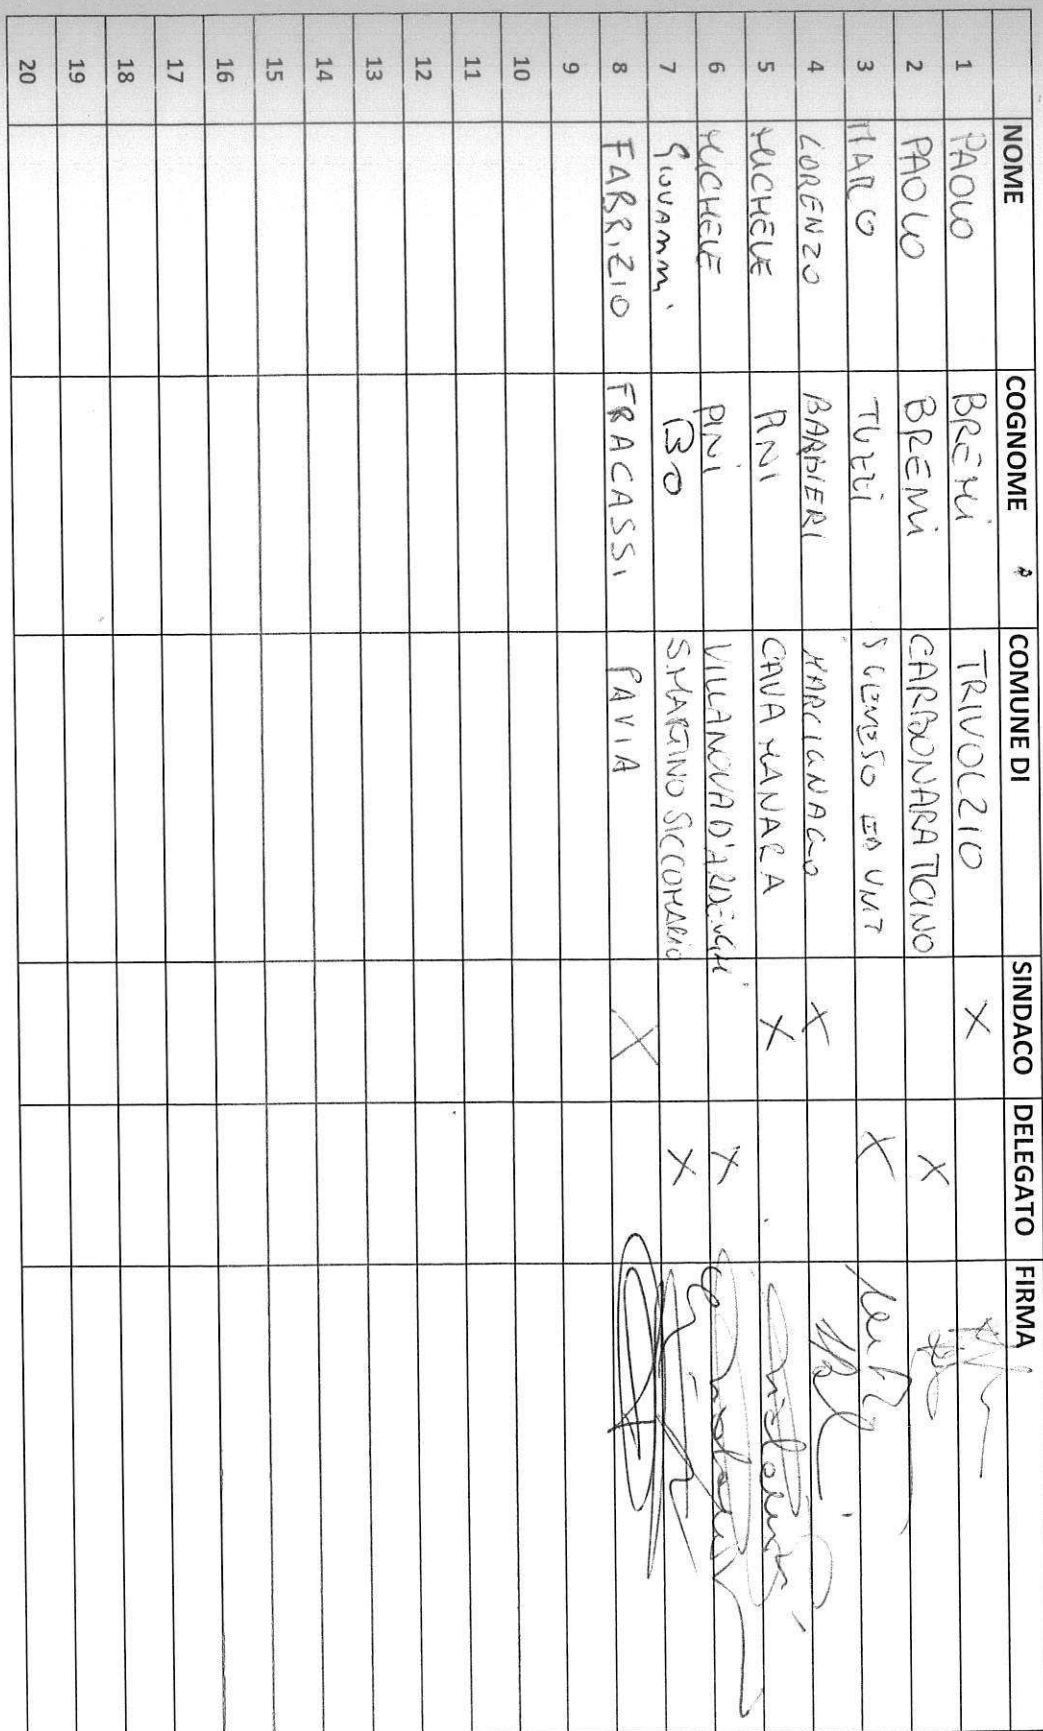 NOME COGNOME COMUNE DI SINDACO DELEGATO FIRMA
1 PAOLO BREMI TRIVOLZIO X
2 PAOLO BREMI CARBONARA TICINO X
3 TUZZI X
4 LORENZO BARBIERI MARCIGNAGO X
5 MICHELE PINI CAVA MANARA X
6 MICHELE PINI VILLANOVA D'ARDENGHI X
7 Giovanni BO S. MARTINO SICCOMARIO X
8 FABRIZIO FRACASSI PAVIA X
9
10
11
12
13
14
15
16
17
18
19
20